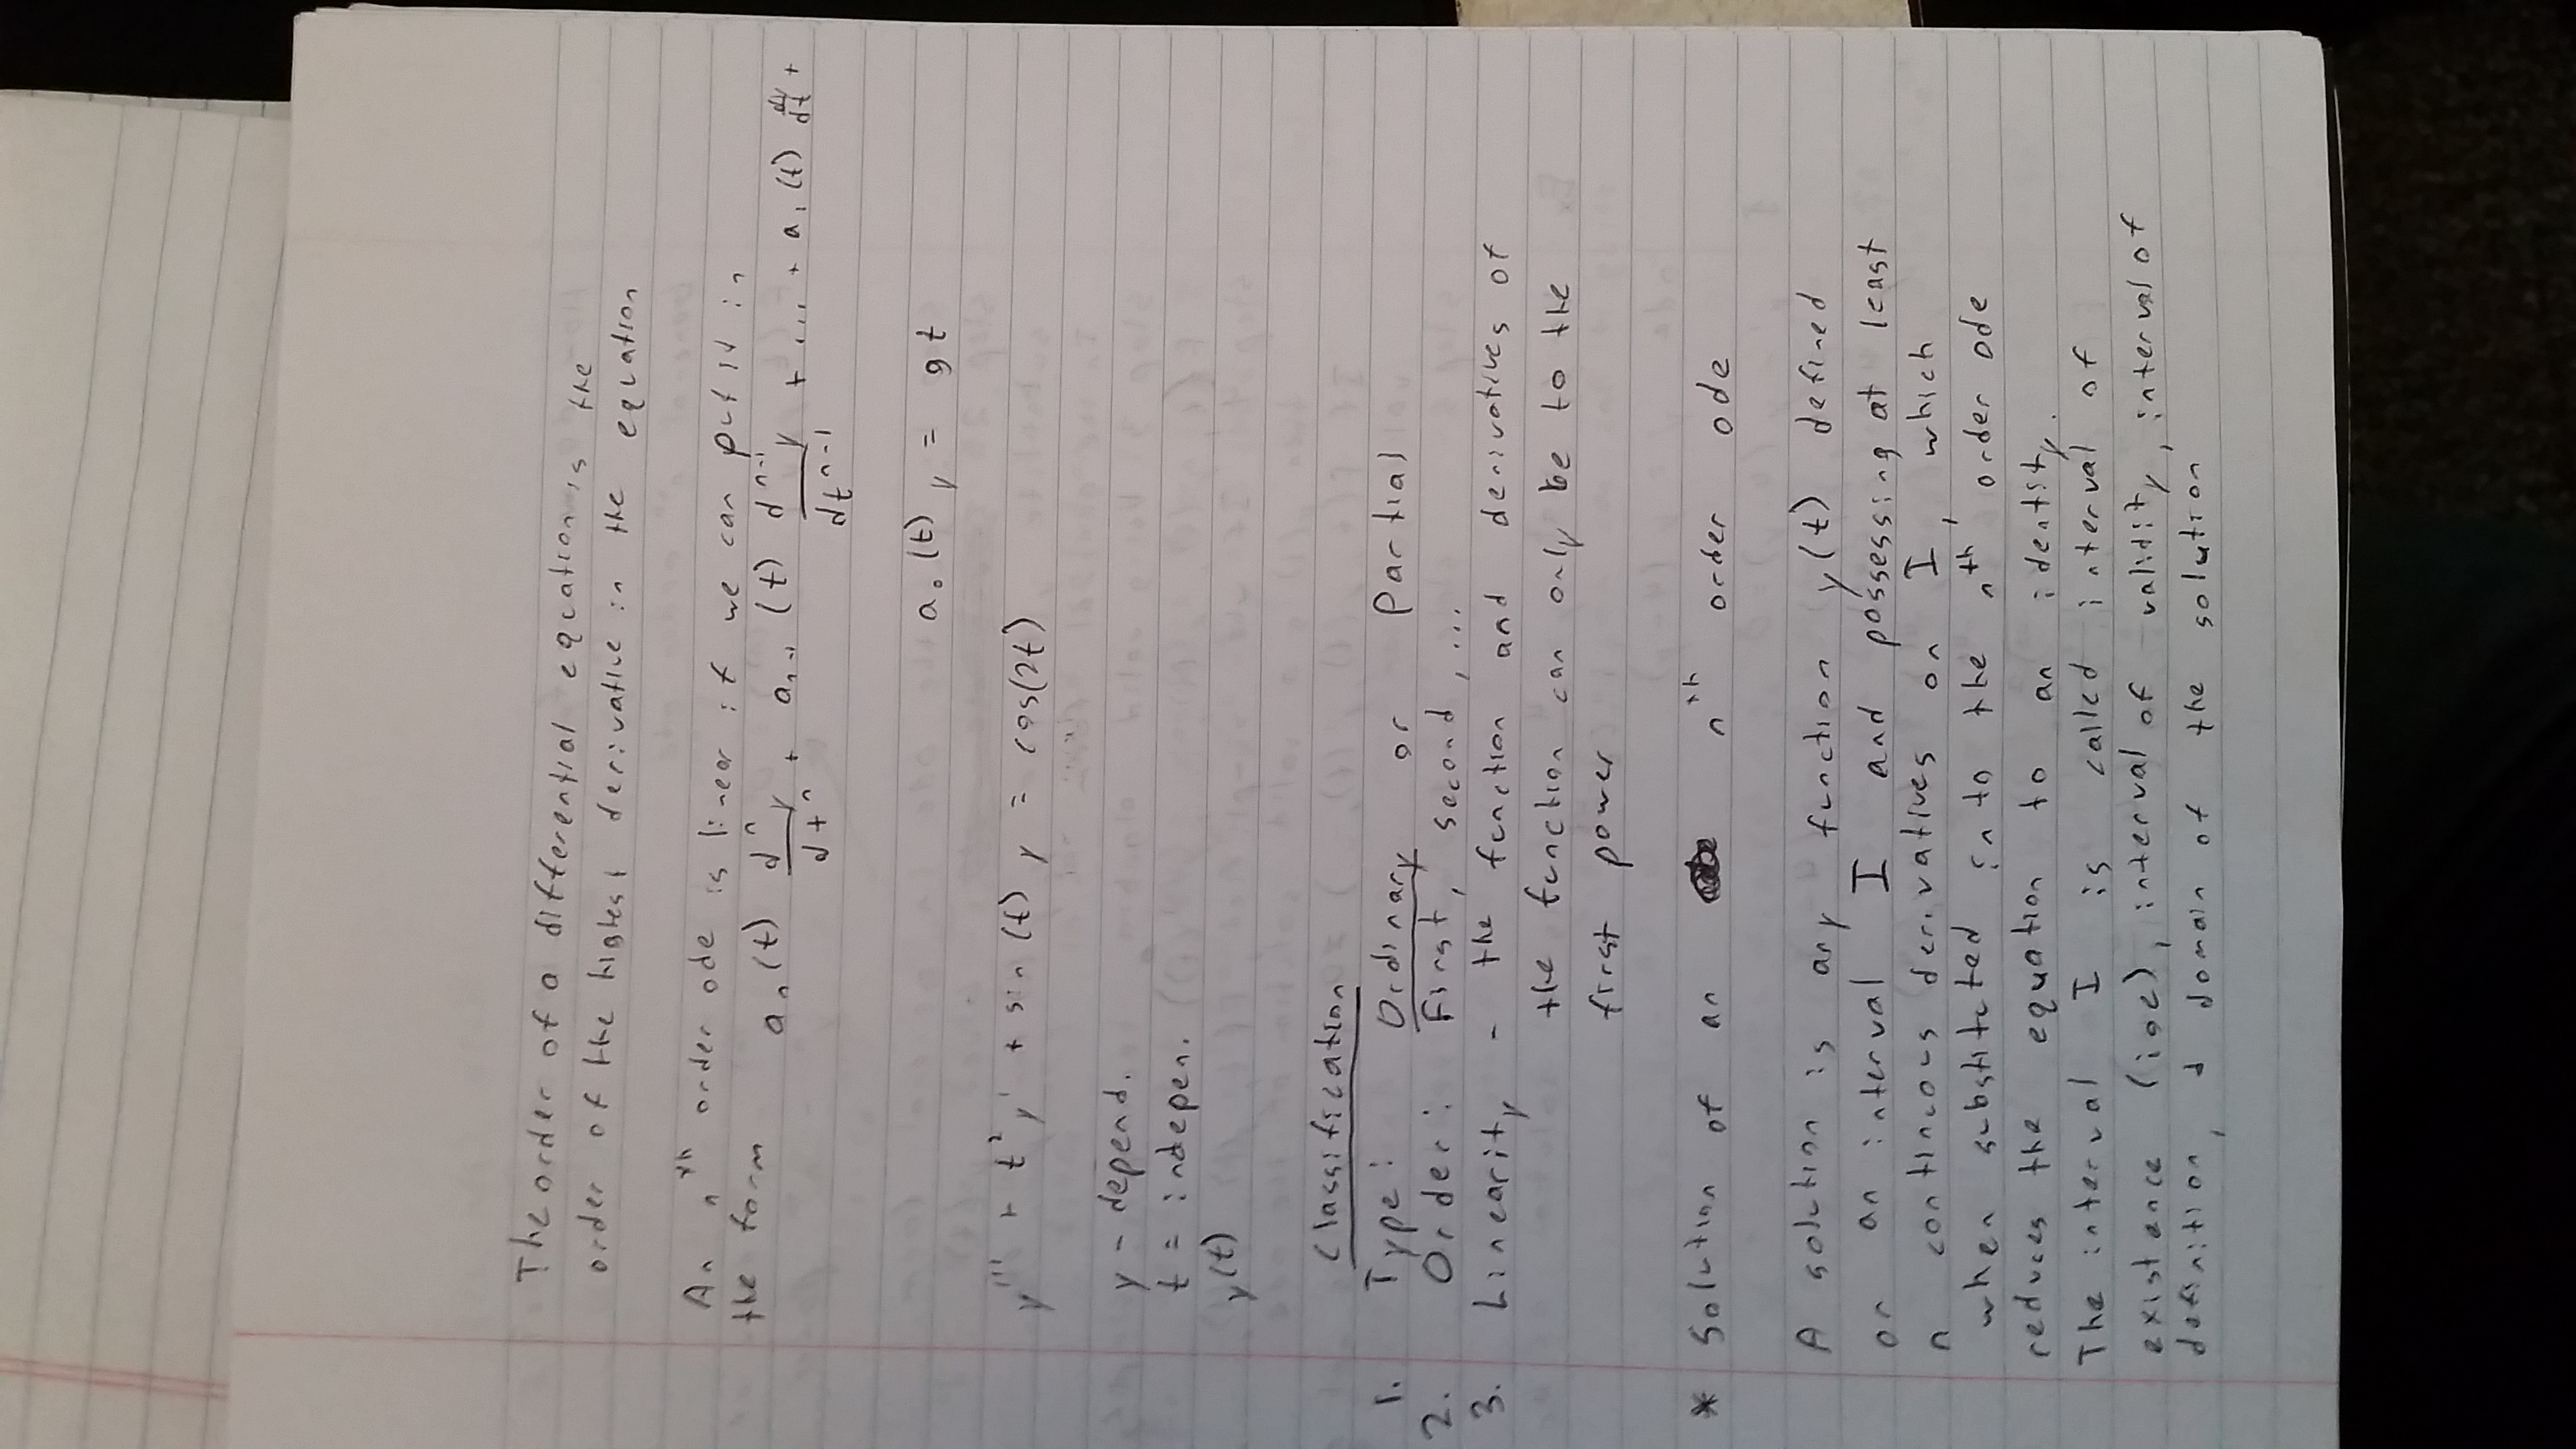 The order of a differential equation is the
order of the highest derivative in the equation
An nᵗʰ order ode is linear if we can put it in
the form aₙ(t) dⁿy/dtⁿ + aₙ₋₁(t) dⁿ⁻¹y/dtⁿ⁻¹ + ... + a₁(t) dy/dt +
a₀(t) y = gt
y''' + t²y' + sin(t) y = cos(2t)
y - depend.
t = indepen.
y(t)
Classification
1. Type: Ordinary or Partial
2. Order: First, second, ...
3. Linearity - the function and derivatives of
the function can only be to the
first power
* Solution of an nᵗʰ order ode
A solution is any function y(t) defined
on an interval I and possessing at least
n continous derivatives on I, which
when substituted into the nᵗʰ order ode
reduces the equation to an identity.
The interval I is called interval of
existence (ioe), interval of validity, interval of
definition, domain of the solution